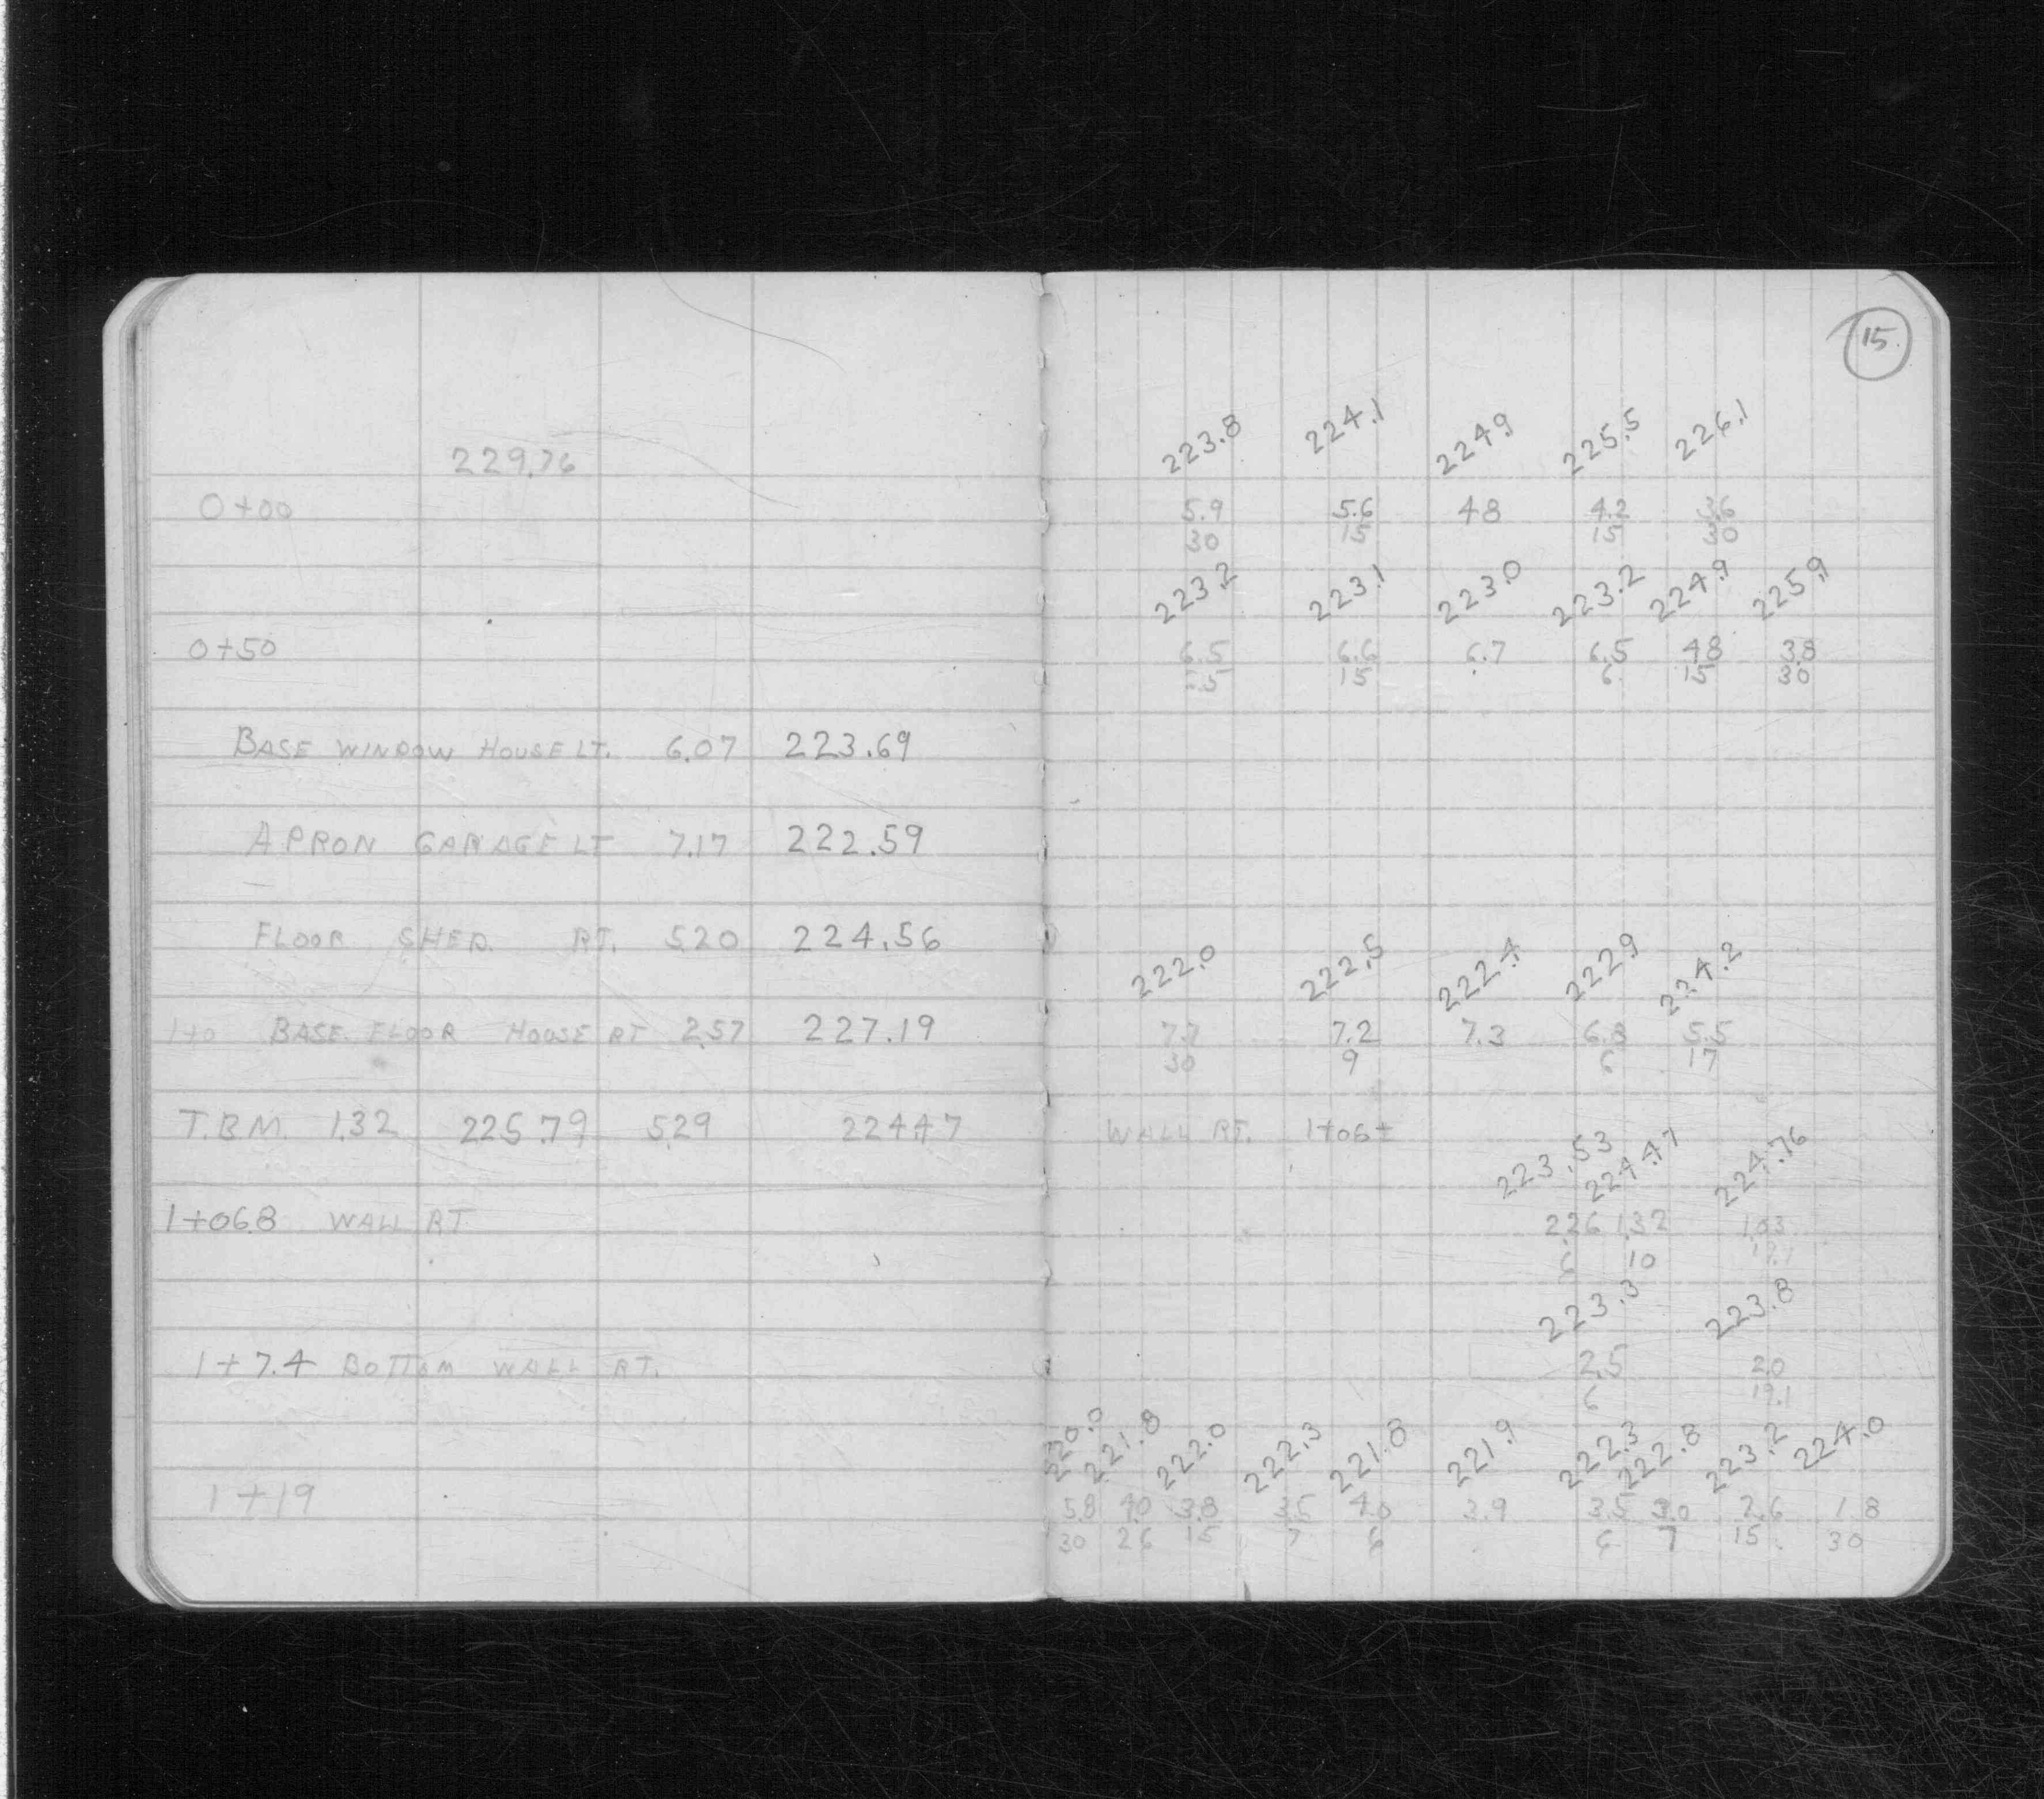 229.76
0+00
0+50
BASE WINDOW HOUSE LT. 6.07 223.69
APRON GARAGE LT 7.17 222.59
FLOOR SHED. RT. 5.20 224.56
1+0 BASE FLOOR HOUSE RT 2.57 227.19
T.B.M. 1.32 225.79 5.29 224.47
1+06.8 WALL RT
1+7.4 BOTTOM WALL RT.
1+19
15
223.8 224.1 224.9 225.5 226.1
5.9 5.6 4.8 4.2 3.6
30 15 15 30
223.2 223.1 223.0 223.2 224.9 225.9
6.5 6.6 6.7 6.5 4.8 3.8
15 6 15 30
222.0 222.5 222.4 222.9 224.2
7.7 7.2 7.3 6.8 5.5
30 9 6 17
WALL RT. 1+06±
223.53 224.47 224.76
2.26 1.32 1.03
6 10 19.1
223.3 223.8
2.5 2.0
6 19.1
220.0 221.8 222.0 222.3 221.8 221.9 222.3 222.8 223.2 224.0
5.8 4.0 3.8 3.5 4.0 3.9 3.5 3.0 2.6 1.8
30 26 15 7 6 6 7 15 30